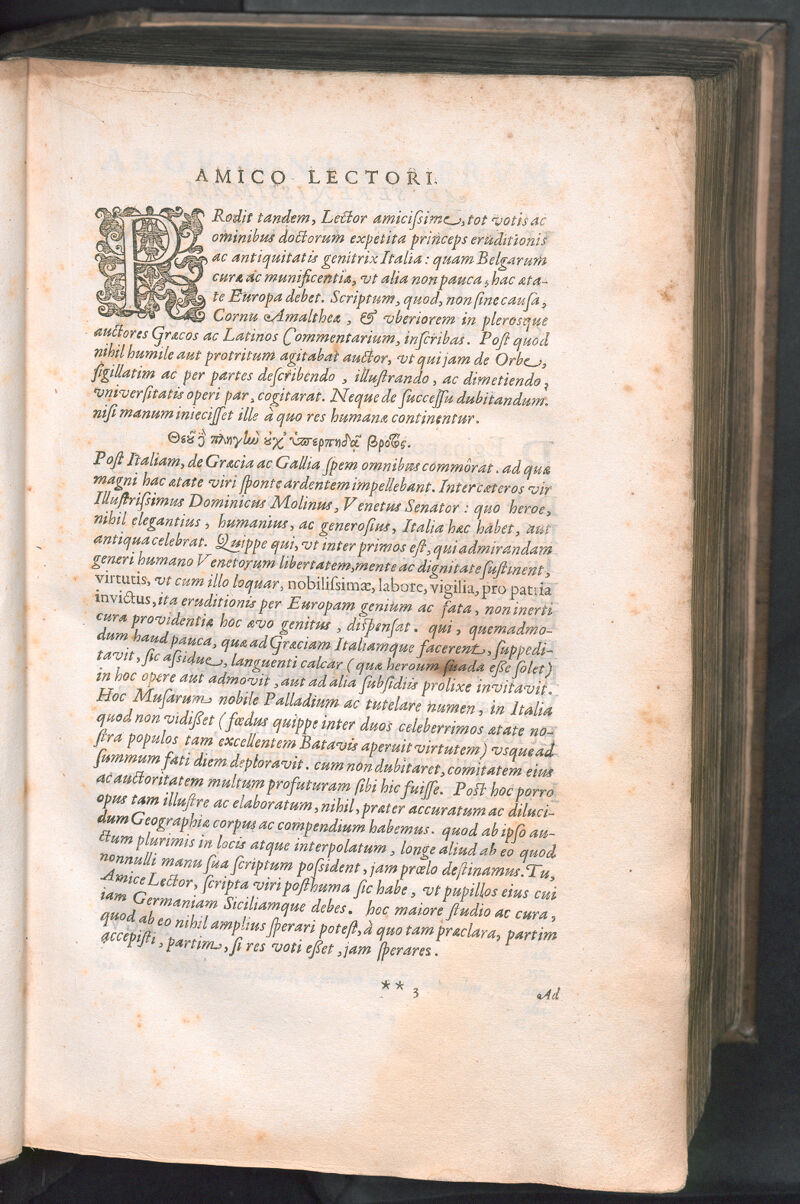 AMICO LECTORI.
PRodit tandem, Lector amicissime, tot votis ac
ominibus doctorum expetita princeps eruditionis
ac antiquitatis genitrix Italia: quam Belgarum
curæ ac munificentiæ, vt alia non pauca, hac æta-
te Europa debet. Scriptum, quod, non sine causa,
Cornu Amaltheæ, & vberiorem in plerosque
auctores Græcos ac Latinos Commentarium, inscribas. Post quod
nihil humile aut protritum agitabat auctor, vt qui jam de Orbe,
sigillatim ac per partes describendo, illustrando, ac dimetiendo,
vniversitatis operi par, cogitarat. Neque de successu dubitandum.
nisi manum iniecisset ille à quo res humanæ continentur.
Θεοῦ ἢ πληγὴν οὐχ ὑπερπηδᾷ βροτός.
Post Italiam, de Græcia ac Gallia spem omnibus commôrat. ad quæ
magni hac ætate viri sponte ardentem impellebant. Inter cæteros vir
Illustrissimus Dominicus Molinus, Venetus Senator: quo heroe,
nihil elegantius, humanius, ac generosius, Italia hæc habet, aut
antiqua celebrat. Quippe qui, vt inter primos est, qui admirandam
generi humano Venetorum libertatem, mente ac dignitate sustinent,
virtutis, vt cum illo loquar, nobilissimæ, labore, vigilia, pro patria
invictus, ita eruditionis per Europam genium ac fata, non inerti
cura providentiæ hoc ævo genitus, dispensat. qui, quemadmo-
dum haud pauca, quæ ad Græciam Italiamque facerent, suppedi-
tavit, sic assidue, languenti calcar (quæ heroum suada esse solet)
in hoc opere aut admovit, aut ad alia subsidiis prolixe invitavit.
Hoc Musarum nobile Palladium ac tutelare numen, in Italia
quod non vidisset (fœdus quippe inter duos celeberrimos ætate no-
stra populos tam excellentem Batavis aperuit virtutem) vsque ad
summum fati diem deploravit. cum non dubitaret, comitatem eius
ac auctoritatem multum profuturam sibi hic fuisse. Post hoc porro
opus tam illustre ac elaboratum, nihil, præter accuratum ac diluci-
dum Geographiæ corpus ac compendium habemus. quod ab ipso au-
ctum plurimis in locis atque interpolatum, longe aliud ab eo quod
nonnulli manu sua scriptum possident, jam prœlo destinamus. Tu,
Amice Lector, scripta viri posthuma sic habe, vt pupillos eius cui
iam Germaniam Siciliamque debes. hoc maiore studio ac cura,
quod ab eo nihil amplius sperari potest, à quo tam præclara, partim
accepisti, partim, si res voti esset, jam sperares.
** 3
Ad